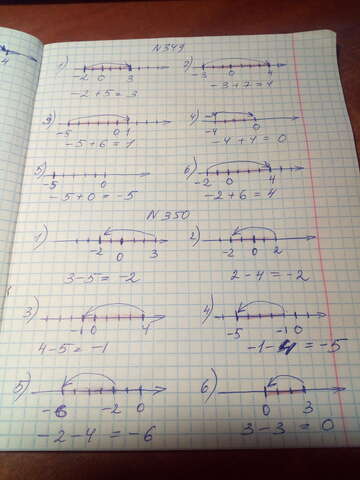 4
N 349
1) 2)
-2 0 3 -3 0 4
-2+5=3 -3+7=4
3) 4) -4
-5 0 1 -4 0
-5+6=1 -4+4=0
5) 6)
-5 0 -2 0 4
-5+0=-5 -2+6=4
N 350
1) 2)
-2 0 3 -2 0 2
3-5=-2 2-4=-2
3) 4)
-1 0 4 -5 -1 0
4-5=-1 -1-4=-5
5) 6)
-6 -2 0 0 3
-2-4=-6 3-3=0